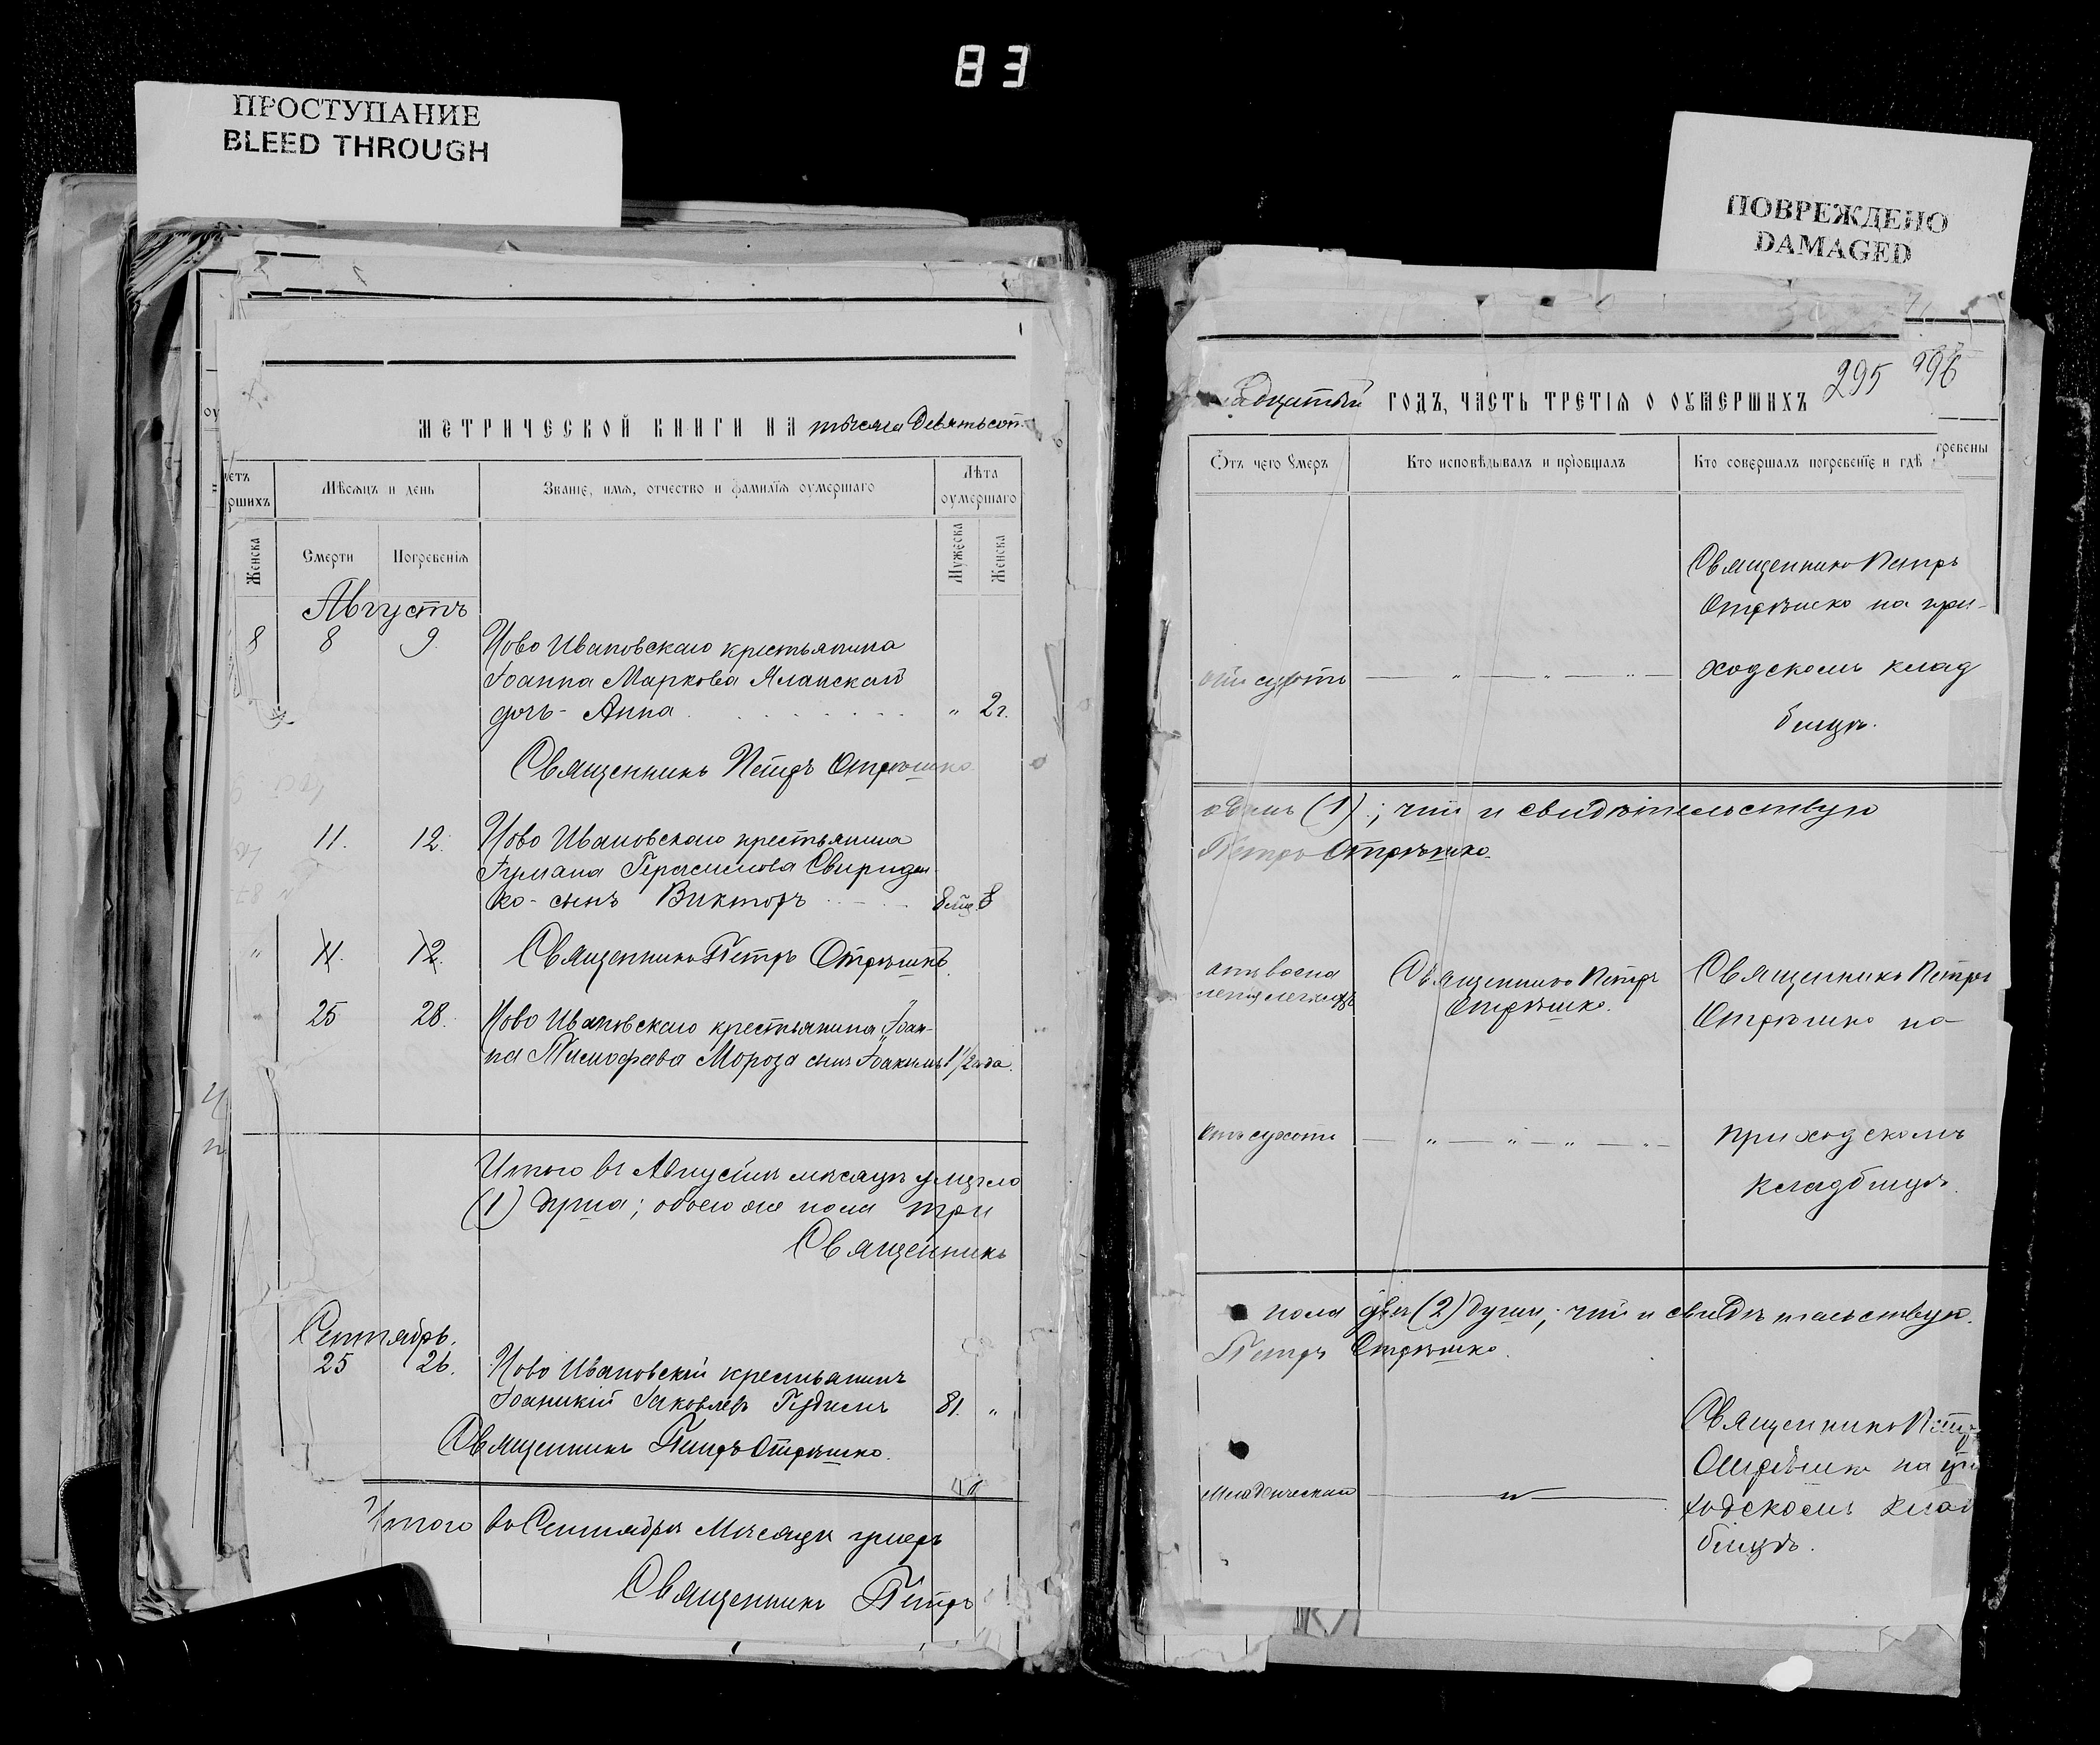 83
ПРОСТУПАНИЕ
BLEED THROUGH
ПОВРЕЖДЕНО
DAMAGED
МЕТРИЧЕСКОЙ КНИГИ НА тысяча девятьсот
Мѣсяцъ и день
Званіе, имя, отчество и фамилія оумершаго
Лѣта оумершаго
Женска
Смерти
Погребенія
Мужеска
Женска
Августъ
8 8 9. Ново Ивановскаго крестьянина
Іоанна Маркова
дочь - Анна " 2 г.
Священникъ Петръ Отрѣшко
11. 12. Ново Ивановскаго крестьянина
Герасимова Свириден
ко - сынъ Викторъ 8
" 11. 12. Священникъ Петръ Отрѣшко
25 28. Ново Ивановскаго крестьянина Іоан-
на Тимофеева Мороза сынъ Іоакимъ 1 1/2 года.
Итого въ Августѣ мѣсяцѣ умерло
(1) душа; обоего же пола три
Священникъ
Сентябрь.
25 26. Ново Ивановскій крестьянинъ
Іоаникій Іаковлевъ 81. "
Священникъ Петръ Отрѣшко.
Итого въ Сентябрѣ мѣсяцѣ умеръ
Священникъ Петръ
ГОДЪ, ЧАСТЬ ТРЕТІЯ О ОУМЕРШИХЪ 295 296
Отъ чего Умеръ
Кто исповѣдывалъ и пріобщалъ
Кто совершалъ погребеніе и гдѣ гребены
Священникъ Петръ
Отрѣшко на при-
ходскомъ клад
бищѣ.
(1); что и свидѣтельствую
Петръ Отрѣшко.
Священникъ Петръ
Отрѣшко.
Священникъ Петръ
Отрѣшко на
Отъ сухоты
приходскомъ
кладбищѣ.
пола двѣ (2) души; что и свидѣтельствую.
Петръ Отрѣшко.
Священникъ
Отрѣшко на
ходскомъ
бищѣ.